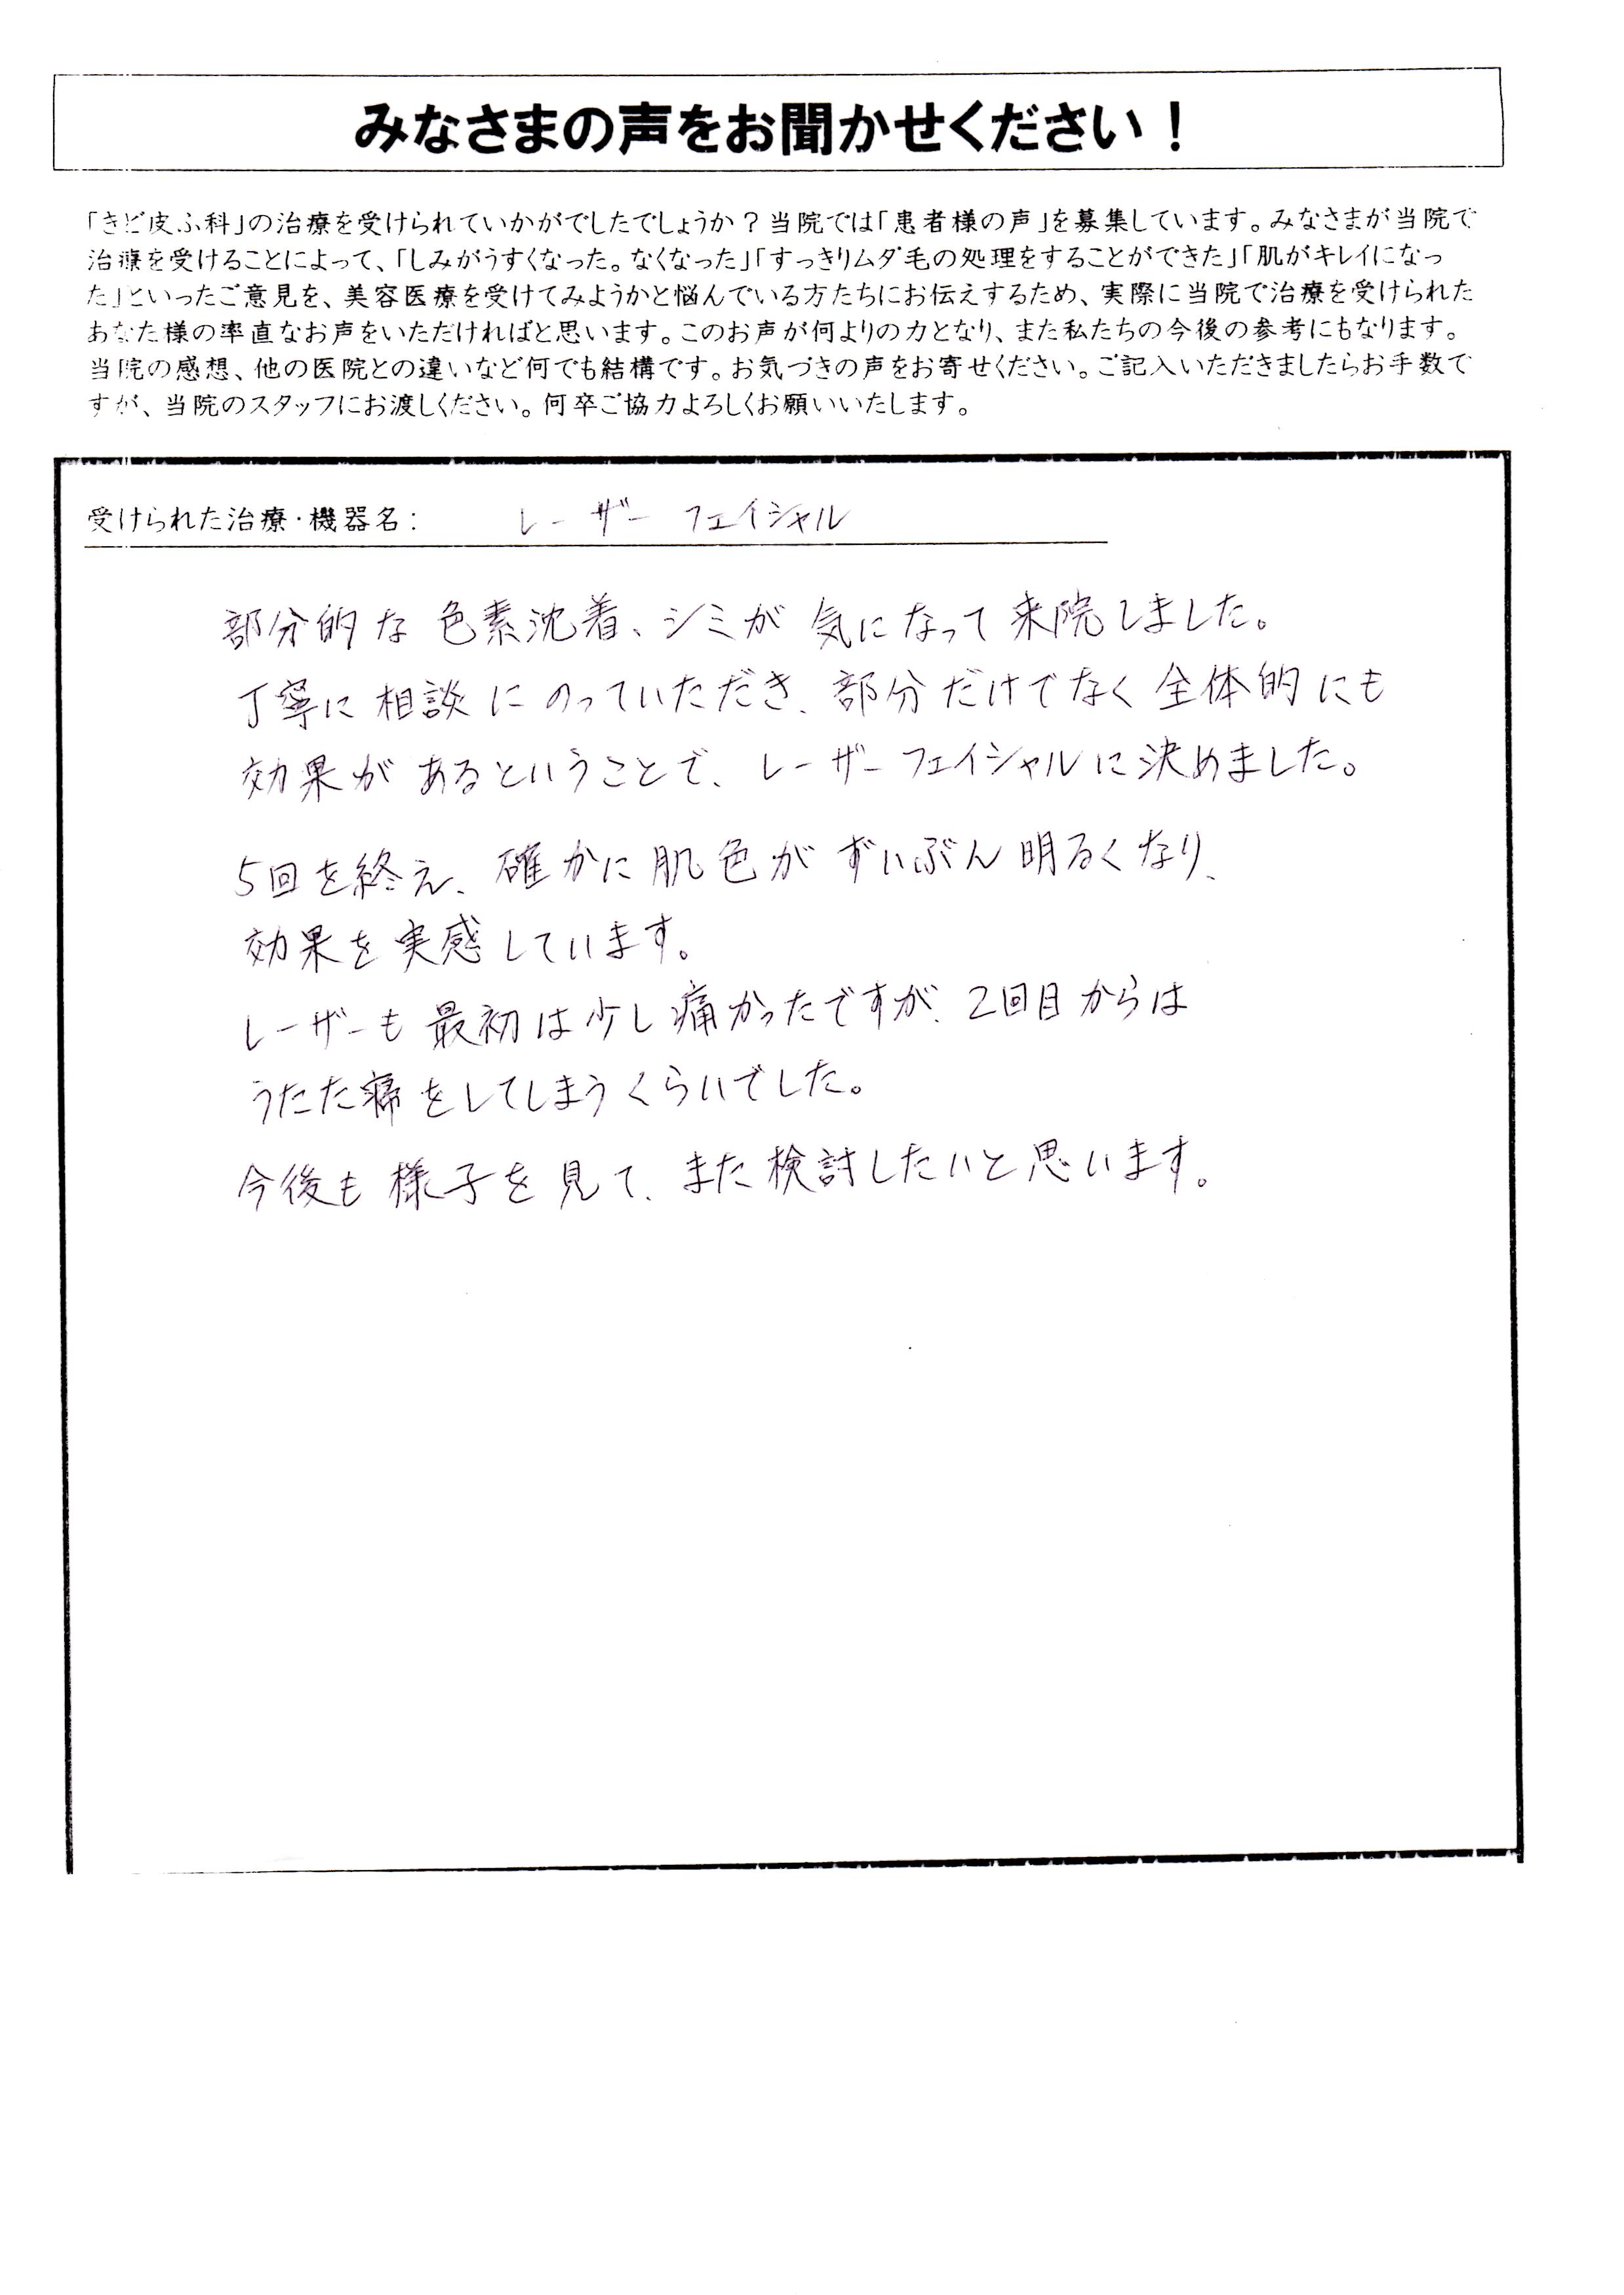 みなさまの声をお聞かせください！
「きど皮ふ科」の治療を受けられていかがでしたでしょうか？当院では「患者様の声」を募集しています。みなさまが当院で
治療を受けることによって、「しみがうすくなった。なくなった」「すっきりムダ毛の処理をすることができた」「肌がキレイになっ
た」といったご意見を、美容医療を受けてみようかと悩んでいる方たちにお伝えするため、実際に当院で治療を受けられた
あなた様の率直なお声をいただければと思います。このお声が何よりの力となり、また私たちの今後の参考にもなります。
当院の感想、他の医院との違いなど何でも結構です。お気づきの声をお寄せください。ご記入いただきましたらお手数で
すが、当院のスタッフにお渡しください。何卒ご協力よろしくお願いいたします。
受けられた治療・機器名： レーザーフェイシャル
部分的な色素沈着、シミが気になって来院しました。
丁寧に相談にのっていただき、部分だけでなく全体的にも
効果があるということで、レーザーフェイシャルに決めました。
5回を終え、確かに肌色がずいぶん明るくなり、
効果を実感しています。
レーザーも最初は少し痛かったですが、2回目からは
うたた寝をしてしまうくらいでした。
今後も様子を見て、また検討したいと思います。